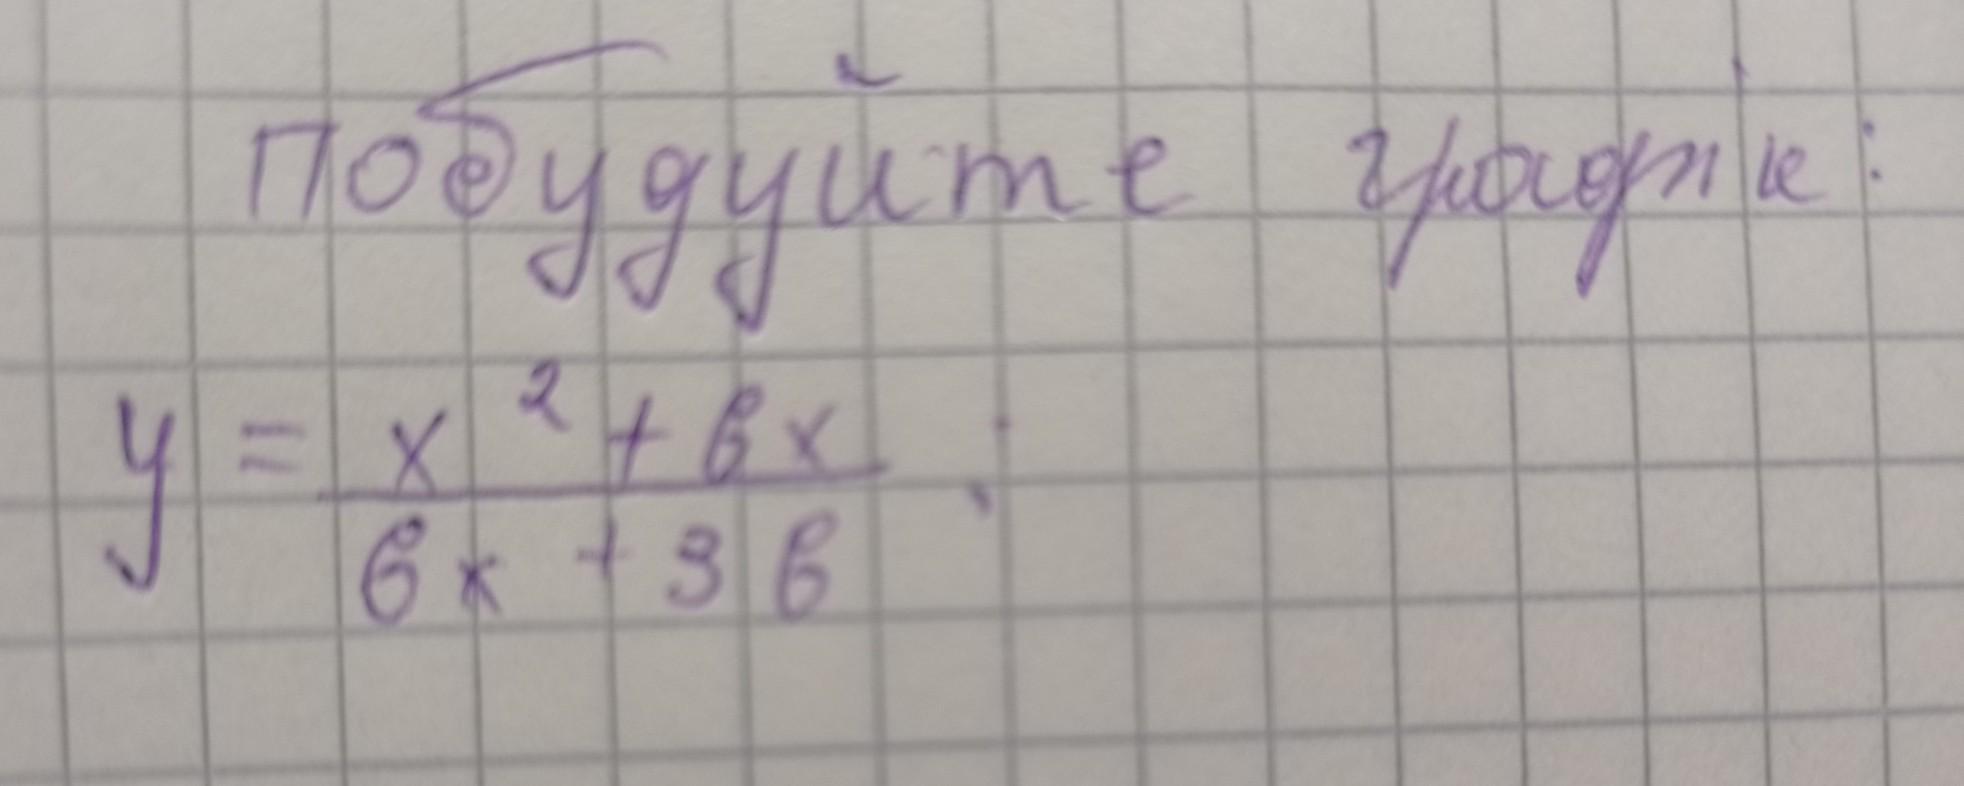 Побудуйте графік:
y = \frac{x^2 + 6x}{6x + 36};